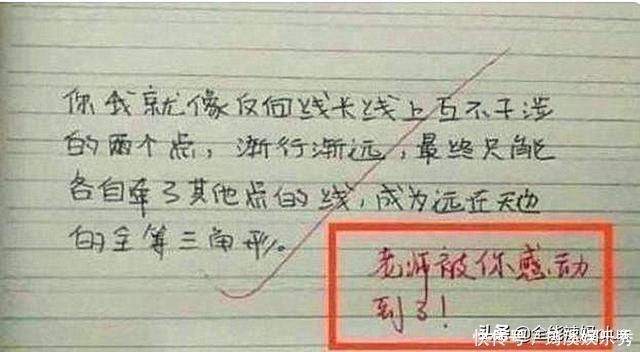 你我就像反向延长线上互不干涉
的两个点，渐行渐远，最终只能
各自牵了其他点的线，成为远在天边
的全等三角形。
老师被你感动
到了！
头条 @全能辣妈
快传号/